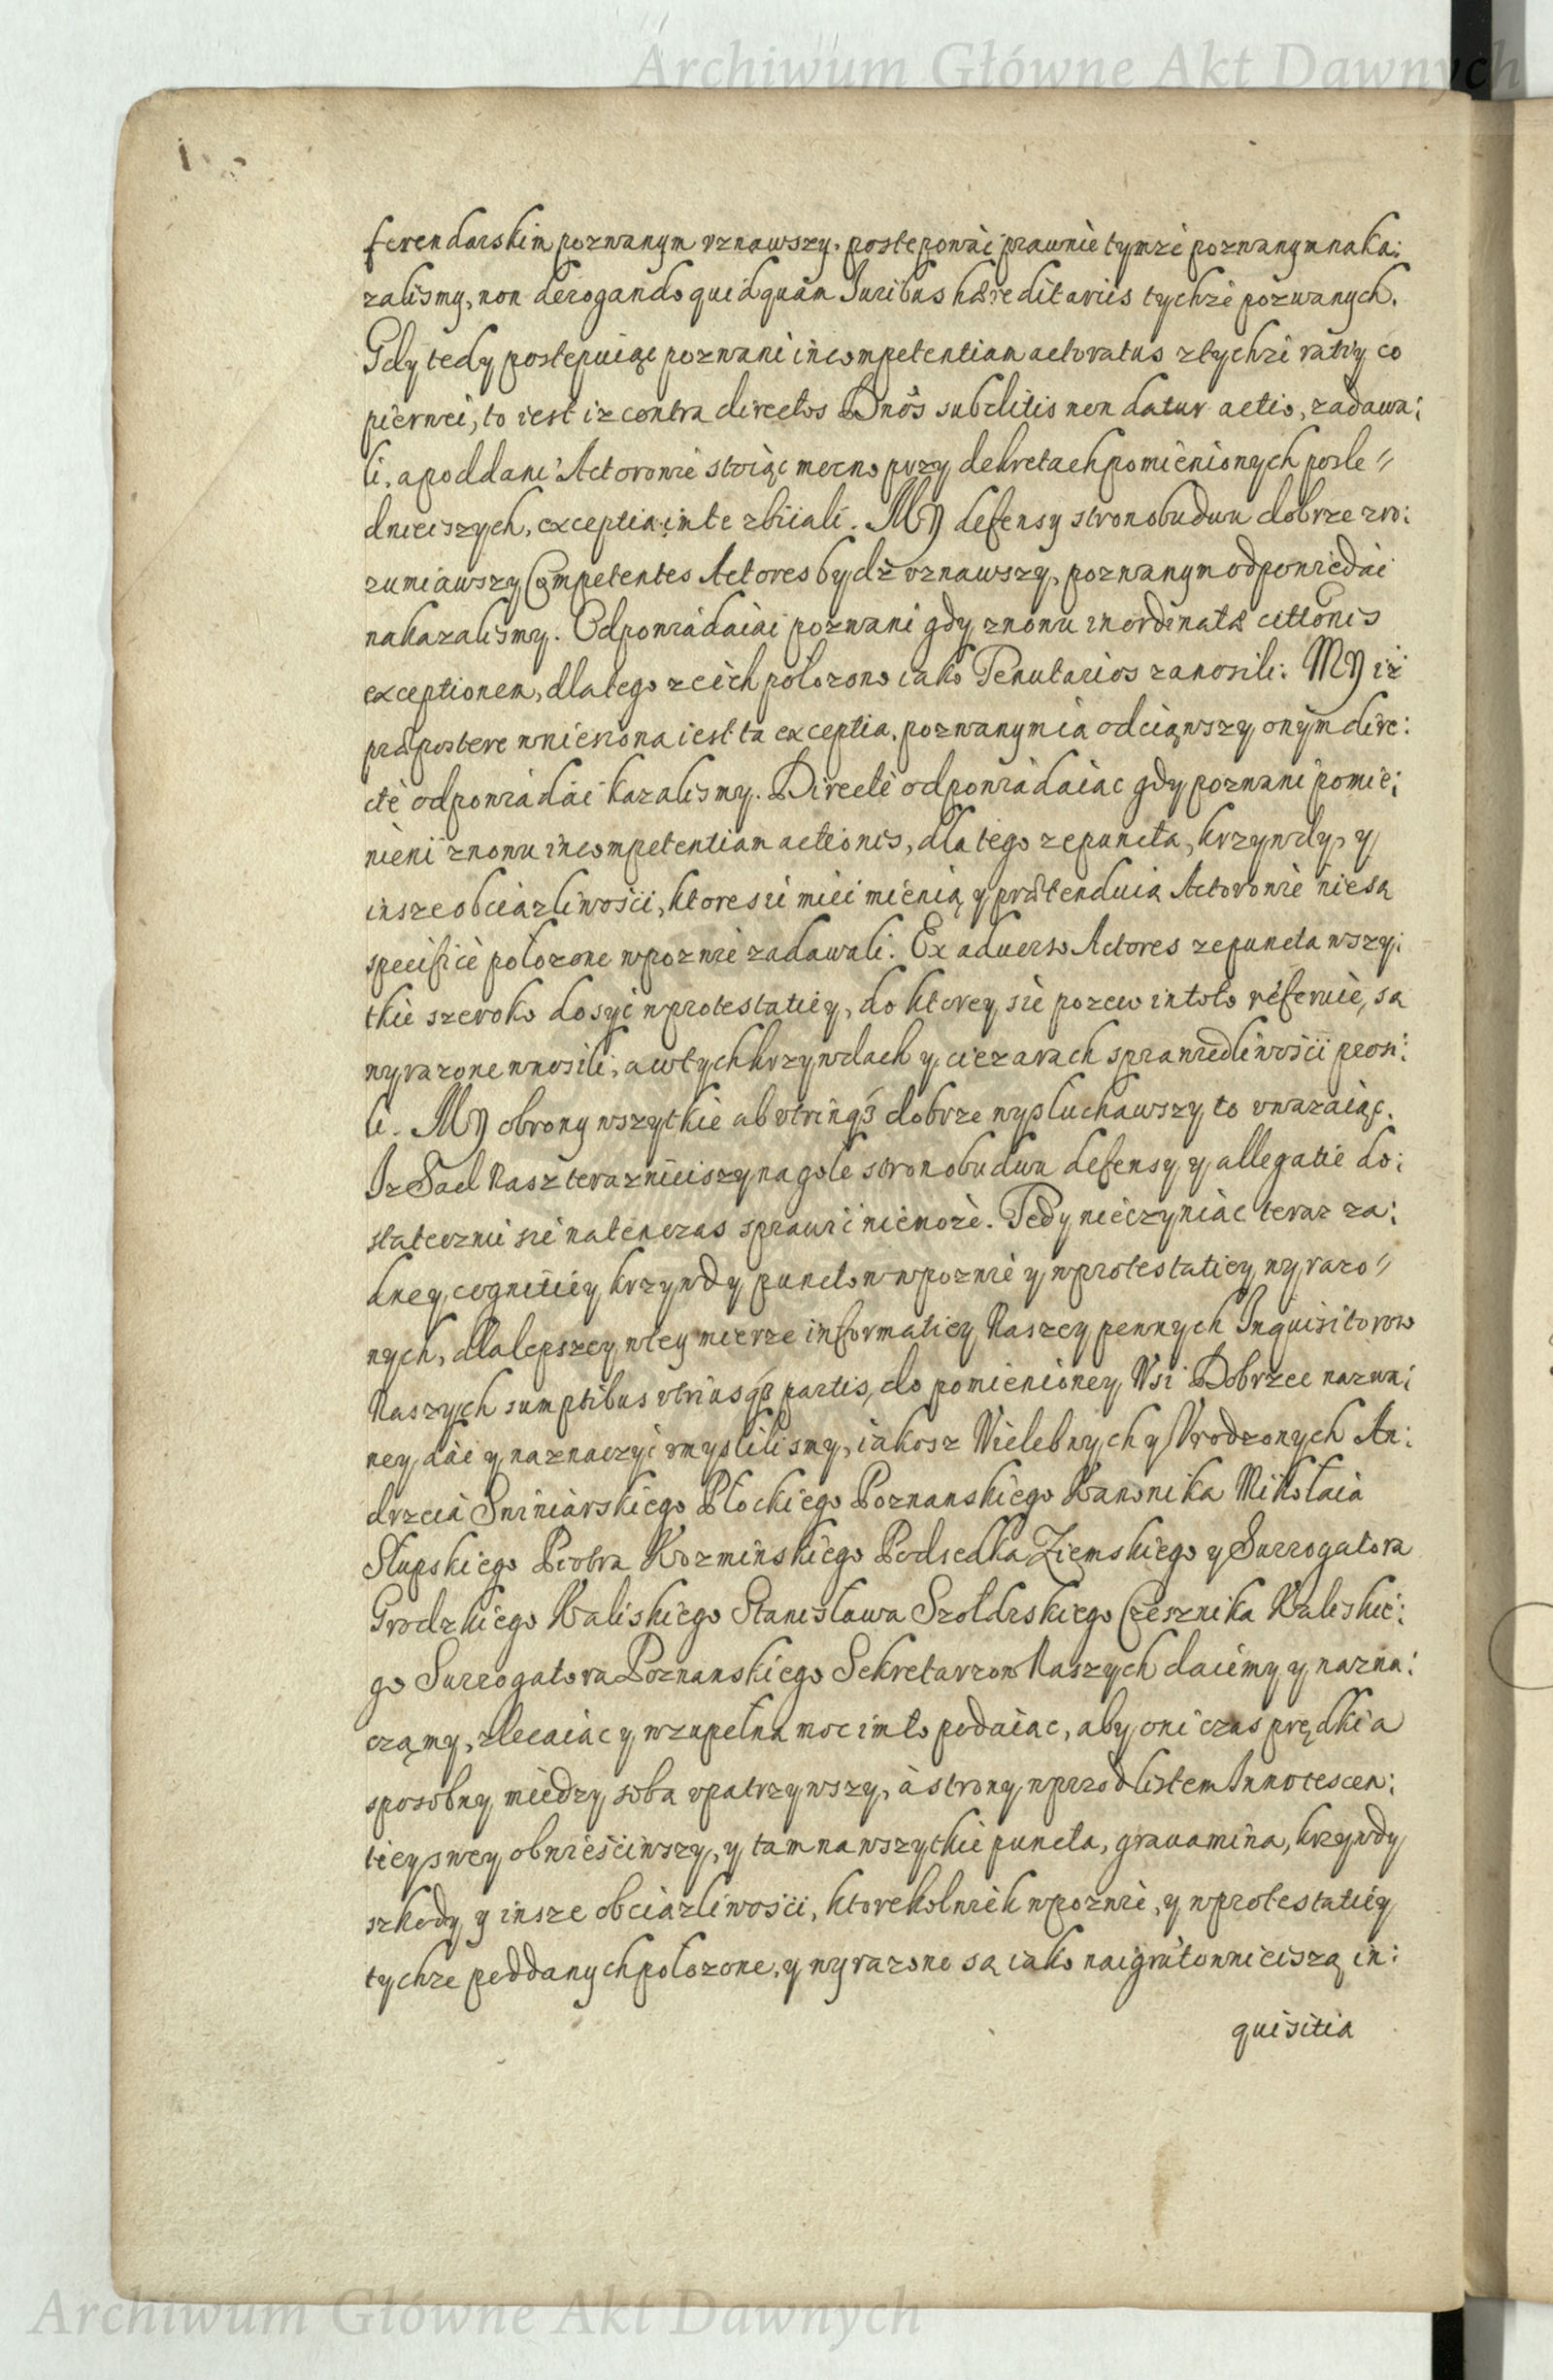 Archiwum Główne Akt Dawnych
ferendarskim pozwanym vznawszy, postępowac prawnie tymze pozwanym naka:
zalismy, non derogando quidquam Iuribus hæreditariis tychze pozwanych.
Gdy tedy postępuiąc pozwani incompetentiam actoratus z tychze ratiy co
pierwei, to iest iz contra directos Dnos subditis non datur actio, zadawa:
li, a poddani Actorowie stoiąc mocno przy dekretach pomienionych posle//
dnieiszych, exceptią inte zbiiali. My defensy stron obudwu dobrze zro:
zumiawszy Competentes Actores bydz vznawszy, pozwanym odpowiedac
nakazalismy. Odpowiadaiąc pozwani gdy znowu inordinatæ cittonis
exceptionem, dlatego ze ich polozono iako Tenutarios zanosili: My iz
præpostere wniesiona iest ta exceptia, pozwanym ią odciąwszy onym dire:
cte odpowiadac kazalismy. Directe odpowiadaiac gdy pozwani pomie:
nieni znowu incompetentiam actionis, dla tego ze puncta, krzywdy, y
insze obciązliwosci, ktore sie miec mienią y prætenduią Actorowie niesą
specifice położone w pozwie zadawali. Ex aduerso Actores ze puncta wszy:
tkie szeroko dosyc w protestatiey, do ktorey sie pozew in toto referuie, są
wyrazone wnosili, a w tych krzywdach y ciezarach sprawiedliwosci prosi:
li. My obrony wszytkie ab vtrinq3 dobrze wysluchawszy to vwazaiąc.
Iz Sąd Nasz teraznieiszy na gole stron obudwu defensy y allegatie do:
statecznie sie natenczas sprawic niemoze. Tedy nieczyniąc teraz za:
dney cognitiey krzywdy punctow w pozwie y w protestatiey wyrazo//
nych, dla lepszey w tey mierze informatiey Naszey pewnych Inquisitorow
Naszych sumptibus vtriusq3 partis, do pomienioney Wsi Dobrzec nazwa:
ney dac y naznaczyc vmyslilismy, iakosz Wielebnych y Vrodzonych An:
drzeia Swiniarskiego Płockiego Poznanskiego Kanonika Mikołaia
Słupskiego Piotra Kozminskiego Podsędka Ziemskiego y Surrogatora
Grodzkiego Kaliskiego Stanisława Szołdrskiego Czesznika Kaliskie:
go Surrogatora Poznanskiego Sekretarzow Naszych daiemy y nazna:
czamy, zlecaiąc y w zupełna moc im to podaiac, aby oni czas prędki a
sposobny miedzy sobą vpatrzywszy, à strony wprzod listem Innotescen:
tiey swey obwieściwszy, y tam na wszytkie puncta, grauamina, krzywdy
szkody y insze obciązliwosci, ktorekolwiek w pozwie, y w protestatiey
tychze poddanych polozone, y wyrazone są iako naigruntownieiszą in:
quisitią
Archiwum Główne Akt Dawnych